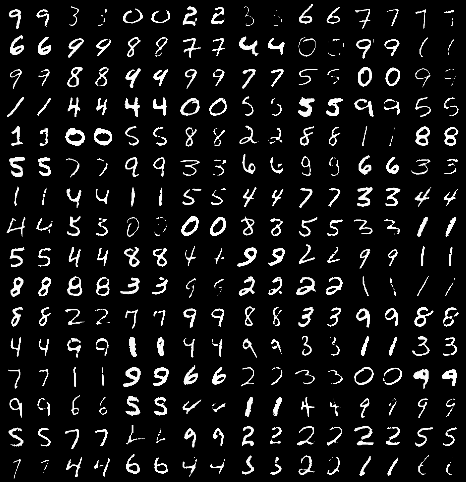 9 9 3 3 0 0 2 2 3 3 6 6 7 7 7 7
6 6 9 9 8 8 7 7 4 4 0 0 9 9 1 1
9 9 8 8 9 9 9 9 7 7 5 5 0 0 9 9
1 1 4 4 4 4 0 0 5 5 5 5 9 9 5 5
1 3 0 0 5 5 8 8 2 2 8 8 1 1 8 8
5 5 7 7 9 9 3 3 6 6 9 9 6 6 3 3
1 1 4 4 1 1 5 5 4 4 7 7 3 3 4 4
4 4 5 3 0 0 0 0 8 8 5 5 3 3 1 1
5 5 4 4 8 8 4 9 9 2 2 9 9 1 1
8 8 8 8 3 3 9 2 2 2 2 1 1 1 1
8 8 2 2 7 7 9 9 8 8 3 3 9 9 8 8
4 4 9 9 1 1 4 4 9 9 3 3 1 1 3 3
7 7 1 1 9 9 6 6 2 2 3 3 0 0 9 9
9 9 6 6 5 5 1 1 4 4 9 9 9 9
5 5 7 7 9 9 2 2 2 2 2 2 5 5
7 7 4 4 6 6 4 4 3 3 2 2 1 1 6